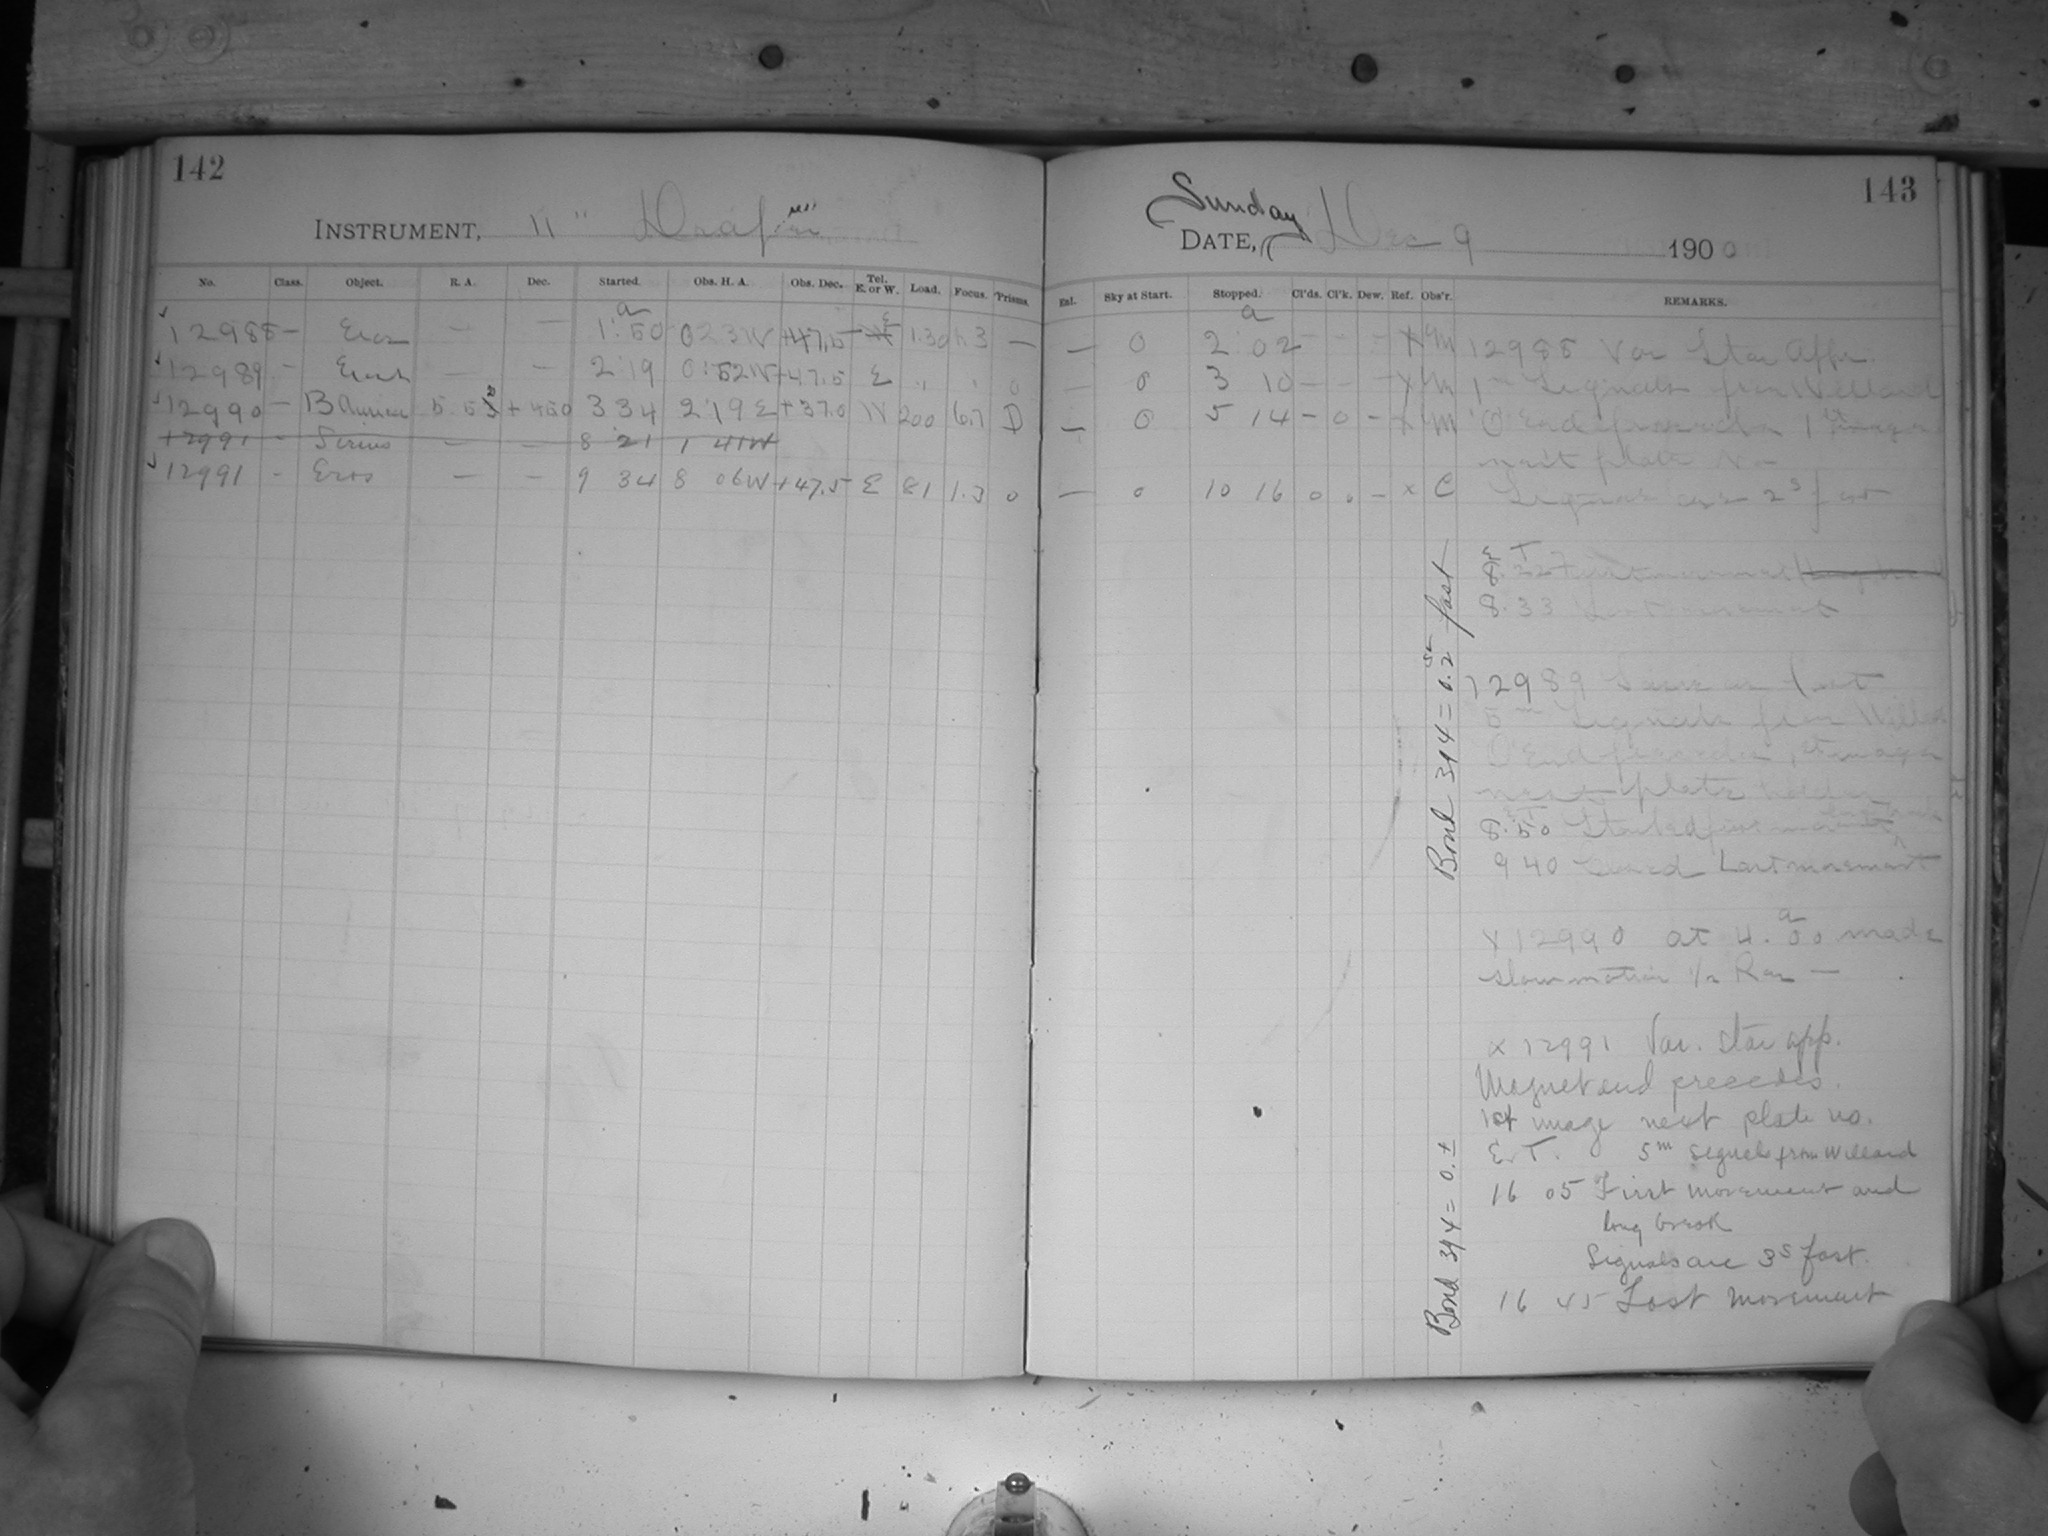 142
INSTRUMENT, 11" Draper
No. Class. Object. R. A. Dec. Started. Obs. H. A. Obs. Dec. Tel. E. or W. Load. Focus. Prisms.
12988 – Eros — — 1 50 a 0 23 W +47.5 E 1.30 1.3 —
12989 – Eros — — 2 19 0 52 W +47.5 E " " 0
12990 – B Aurigae 5 53 +450 3 34 2 19 E +37.0 W 200 6.7 D
12991 – Sirius — — 8 21 1 41 W
12991 - Eros — — 9 34 8 06 W +47.5 E 81 1.3 0
143
Sunday
DATE, Dec 9 1900
Ext. Sky at Start. Stopped. Cl'ds. Cl'k. Dew. Ref. Obs'r. REMARKS.
— 0 2 02 a – – – X M 12988 Var Star App.
— 0 3 10 – – – X M 1m Signals from Willard
— 0 5 14 – 0 – X M 'O' End precedes 1st image
next plate No
— 0 10 16 0 0 – x C Signals are 2s fast
8.22 First movement
8.33 Last movement
Bond 394 = 0.2s fast
12989 Same as first
5m Signals from Willard
'O' End precedes, 1st image
next plate holder
8.50 Started first movement
9 40 Last movement
X 12990 at 4.00 a made
slow motion 1/2 Rev —
x 12991 Var. Star app.
Magnet end precedes.
1st image next plate no.
E. T. 5m Signals from Willard
16 05 First movement and
long break
Signals are 3s fast.
16 45 Last movement
Bond 394 = 0. ±